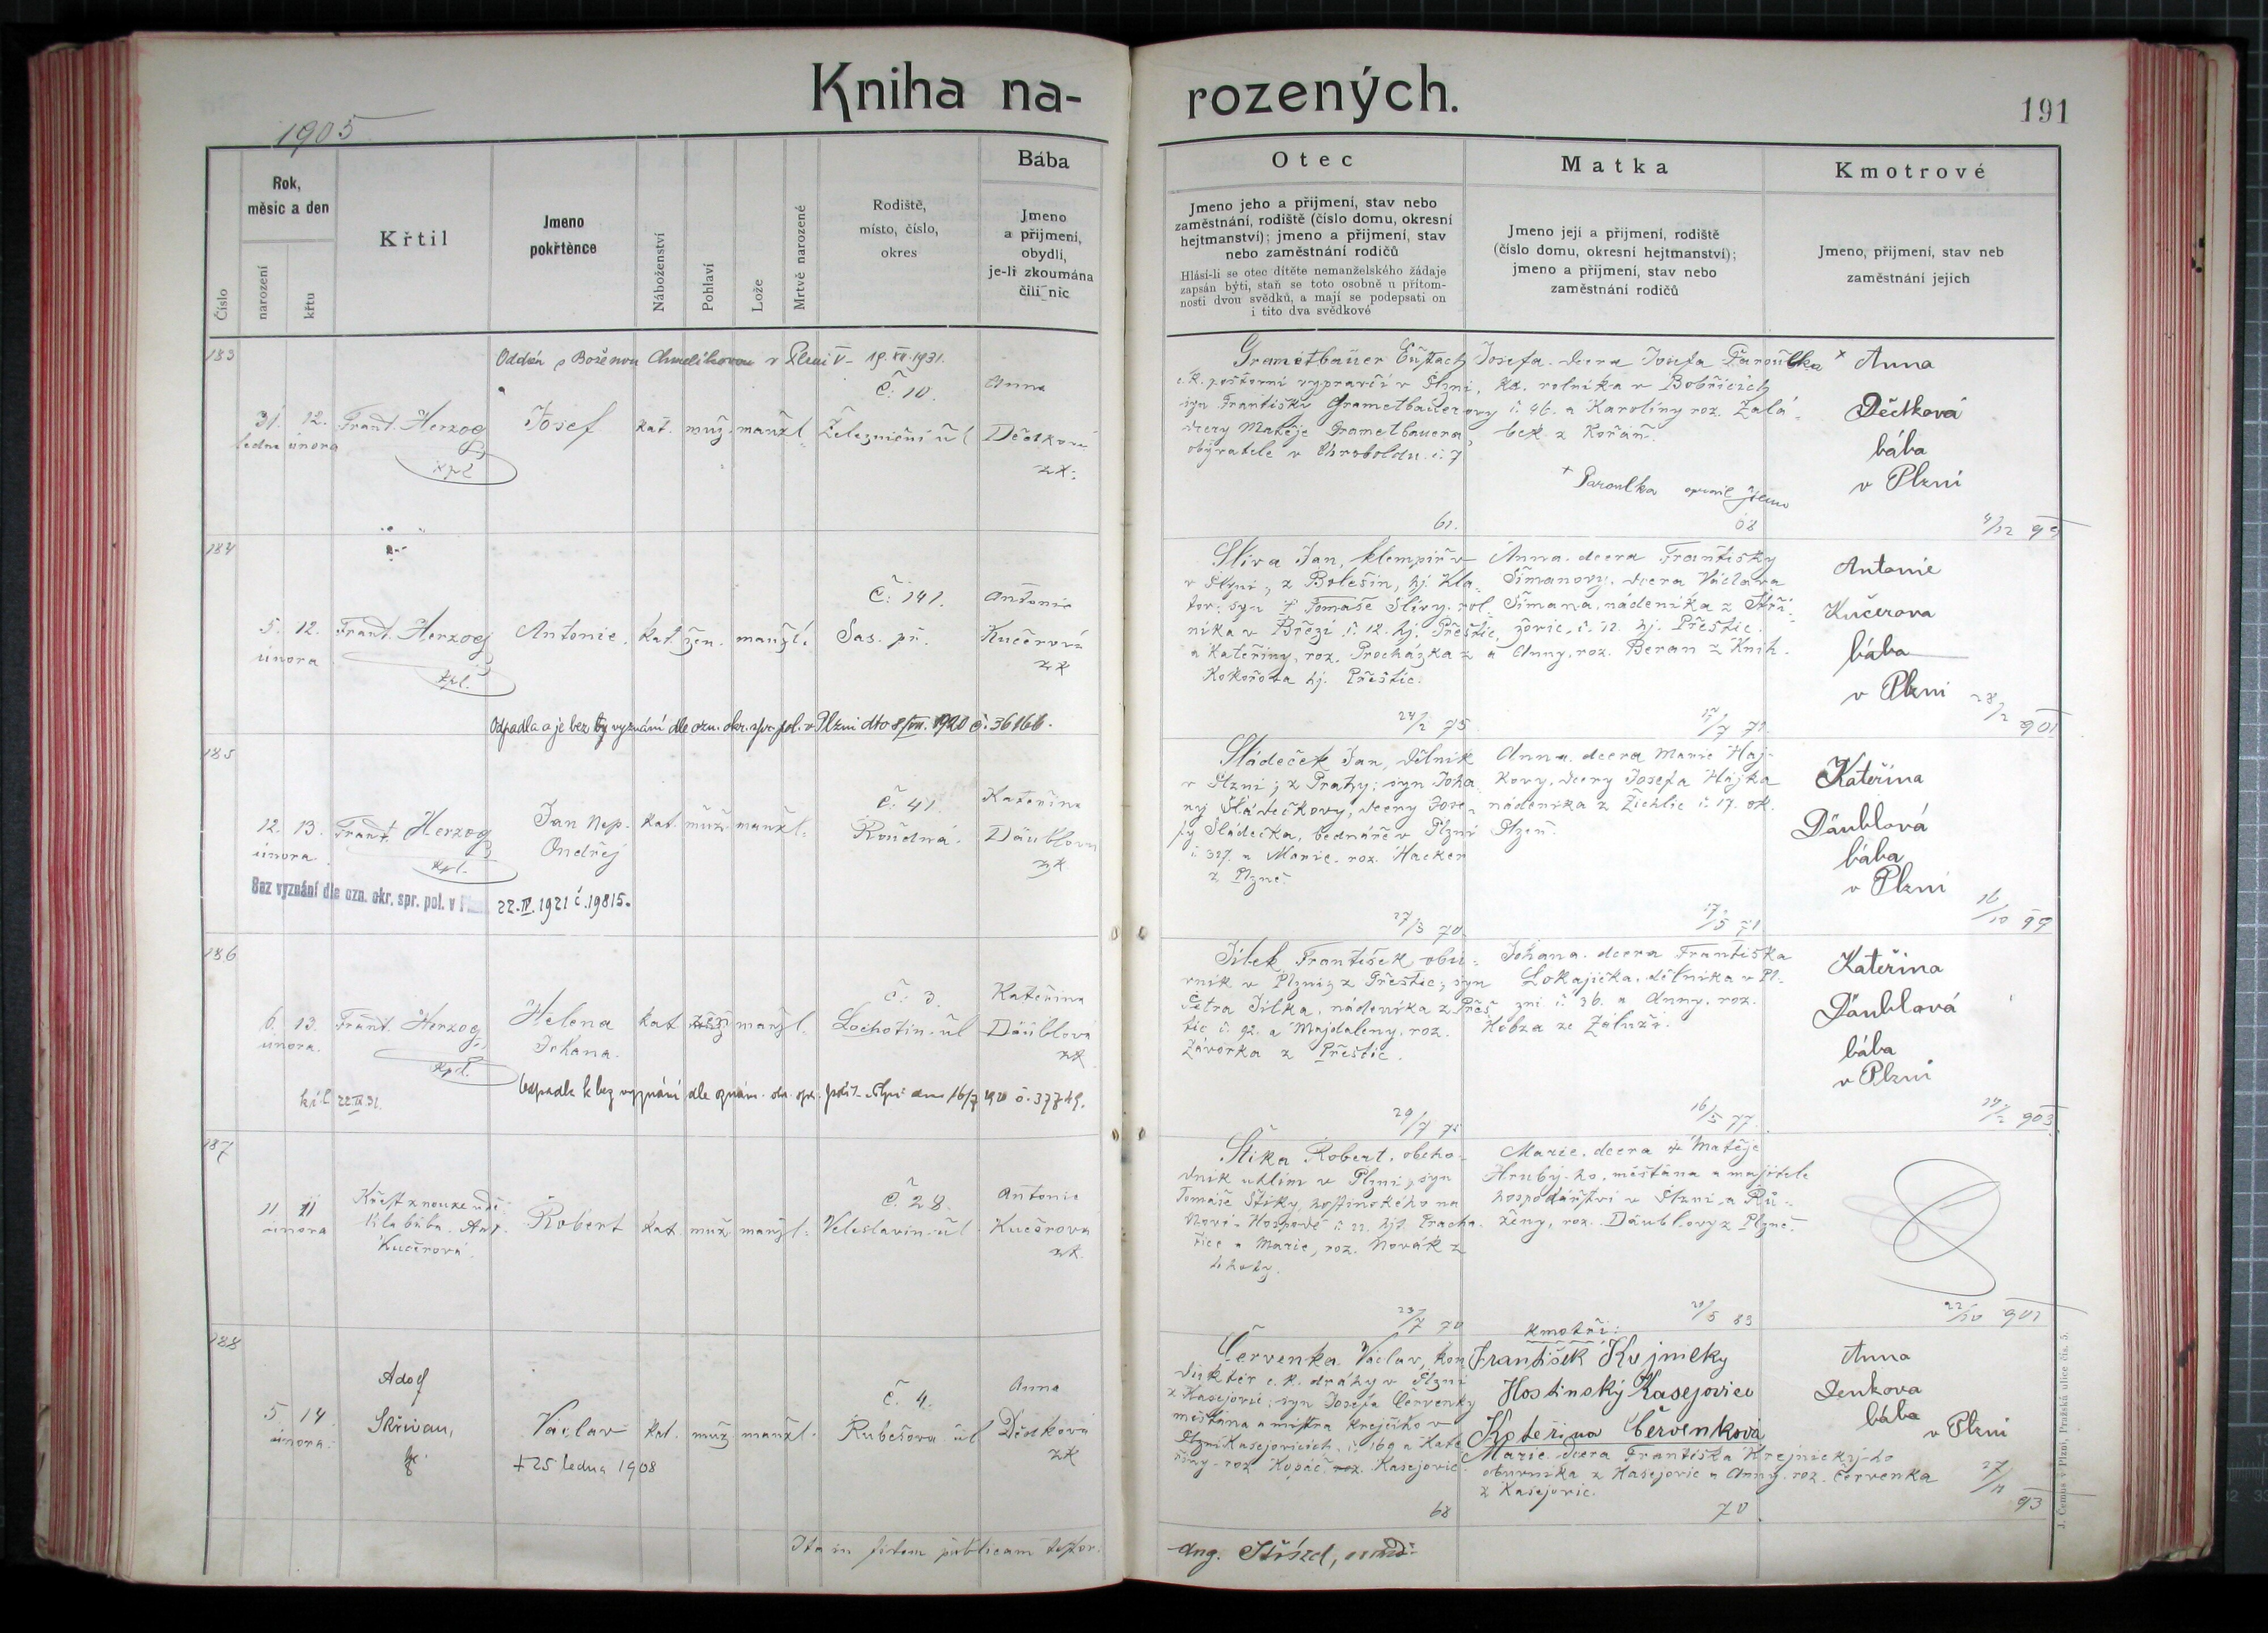 Kniha na-
rozených.
191
1905
Číslo
Rok,
měsíc a den
narození
křtu
Křtil
Jmeno
pokřtěnce
Náboženství
Pohlaví
Lože
Mrtvě narozené
Rodiště,
místo, číslo,
okres
Bába
Jmeno
a přijmení,
obydlí,
je-li zkoumána
čili nic
Otec
Jmeno jeho a přijmení, stav nebo
zaměstnání, rodiště (číslo domu, okresní
hejtmanství); jmeno a přijmení, stav
nebo zaměstnání rodičů
Hlásí-li se otec dítěte nemanželského žádaje
zapsán býti, staň se toto osobně u přítom-
nosti dvou svědků, a mají se podepsati on
i tito dva svědkové
Matka
Jmeno její a přijmení, rodiště
(číslo domu, okresní hejtmanství);
jmeno a přijmení, stav nebo
zaměstnání rodičů
Kmotrové
Jmeno, přijmení, stav neb
zaměstnání jejich
183
Oddán s Boženou Chmelíkovou v Plzni V- 19.VII.1931.
31. ledna
12. února
Frant. Herzog
kpl
Josef
kat.
muž.
manžl.
Č. 10.
Železniční ul
Anna
Dědková
zk.
Grametbauer Eustach
c.k. poštovní výpravčí v Plzni,
syn Františky Grametbauerovy
dcery Matěje Grametbauera,
obyvatele v Chroboldu č. 7
61.
Josefa. dcera Josefa Paroulka +
rolníka v Bobřicích
č. 46. a Karolíny roz. Zalá-
bek z Kořan.
+ Paroulka
68
Anna
Dědková
bába
v Plzni
184
5. února
12.
Frant. Herzog
kpl.
Antonie.
kat.
žen.
manžl.
Č. 141.
Sas. př.
Antonie
Kučerová
zk
Odpadla a je bez vyznání dle ozn. okr. spr. pol. v Plzni dto 8/VII. 1920 č. 36166.
Slíva Jan, klempíř
v Plzni, z Bolešin, hj. Kla-
tov. syn Tomáše Slívy. rol-
níka v Březí č. 12. hj. Přeštic,
a Kateřiny, roz. Procházka z
Kokořova hj. Přeštic.
24/2 75
Anna. dcera Františky
Šimanovy, dcera Václava
Šimana, nádeníka z
č. 12. hj. Přeštic.
a Anny, roz. Beran z Knih.
17/7 71.
Antonie
Kučerova
bába
v Plzni
28/2 901
185
12. února
13.
Frant. Herzog
kpl.
Jan Nep.
Ondřej
kat.
muž.
manžl.
č. 41
Roudná.
Kateřina
Däublova
zk
Bez vyznání dle ozn. okr. spr. pol. v 22.IV.1921 č.19815.
Sládeček Jan, dělník
v Plzni; z Prahy; syn Joha-
ny Sládečkovy, dcery Jose-
fa Sládečka, bednáře v Plzni
č. 327. a Marie. roz. Hacker
z Plzně.
27/3 70.
Anna. dcera Marie Háj-
kovy. dcery Josefa Hájka
nádeníka z Žichlic č. 17. ok.
Plzeň.
17/5 71
Kateřina
Däublová
bába
v Plzni
16/10 99
186
6. února.
13.
Frant. Herzog
kpl.
Helena
Johana.
kat
manžl.
č. 3.
Lochotín. ul
Kateřina
Däublová
zk
Odpadla k bez vyznání dle oznám. okr. spr. polit. v Plzni dne 16/7 1920 č. 37749.
Jílek František obu-
vník v Plzni, z Přeštic, syn
Petra Jílka, nádeníka z Přeš-
tic č. 92. a Majdaleny, roz.
Závorka z Přeštic.
29/7 75
Johana. dcera Františka
Lokajíčka, dělníka v Pl-
zni č. 36. a Anny. roz.
Hobza ze Záluží.
16/5 77.
Kateřina
Däublová
bába
v Plzni
903
187
11 února
11
Křest z nouze udě-
lila bába. Ant.
Kučerová.
Robert
kat.
muž.
manžl.
č. 28.
Veleslavín. ul
Antonie
Kučerova
zk.
Štika Robert, obcho-
dník uhlím v Plzni, syn
Tomáše Štiky, hostinského na
Nové Hospodě č. 22. hjt. Pracha-
tice a Marie, roz. Novák z
Lhoty.
23/7 70
Marie. dcera Matěje
Hrubý-ho, měšťana a majitele
hospodářství v Plzni a Rů-
ženy, roz. Däublovy z Plzně.
21/5 83
22/10 901
188
5. února.
14.
Adolf
Skřivan,
Václav
kat.
muž.
manžl.
č. 4.
Rubešova ul
Anna
Dědková
zk
+ 25 ledna 1908
Červenka Václav, kon-
duktér c.k. dráhy v Plzni
z Kasejovic; syn Josefa Červenky
měšťana a mistra krejčího v
Kasejovicích č. 169 a Kate-
řiny roz Kopáč Kasejovic.
68
kmotři:
František
Hostinský Kasejovice
Kateřina Červenková
Marie. dcera Františka Krejnický-ho
obuvníka z Kasejovic a Anny. roz. Červenka
z Kasejovic.
70.
Anna
Denkova
bába
v Plzni
27/11 93
Ita in fidem publicam testor:
J. Čemus v Plzni, Pražská ulice čís. 5.